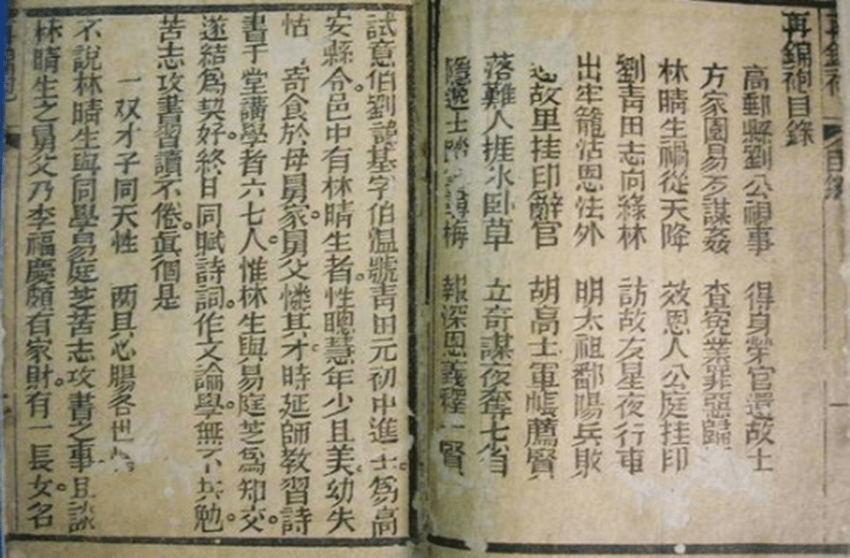 再錦袍目錄
高郵縣劉公視事 得身榮官還故士
方家園易歹謀姦 查寃業罪惡歸
林晴生禍從天降 效恩人公庭挂印
劉青田志向綠林 訪故友星夜行車
出牢籠沽恩法外 明太祖鄱陽兵敗
故里挂印辭官 胡高士軍帳薦賢
落難人捱氷卧草 立奇謀夜奪七省
隱逸士 梅 報深恩義釋一賢
試意伯劉諱基字伯溫號青田元初中進士爲高
安縣令邑中有林晴生者性聰慧年少且美幼失
怙 寄食於母舅家舅父憐其才時延師教習詩
書于堂講學者六七人惟林生與易庭芝爲知交
遂結爲契好終日同賦詩詞作文論學無不共勉
苦志攻書習讀不倦眞個是
一双才子同天性 两具心腸各世
不說林晴生與同學易庭芝苦志攻書之事且談
林晴生之舅父乃李福慶頗有家財有一長女名